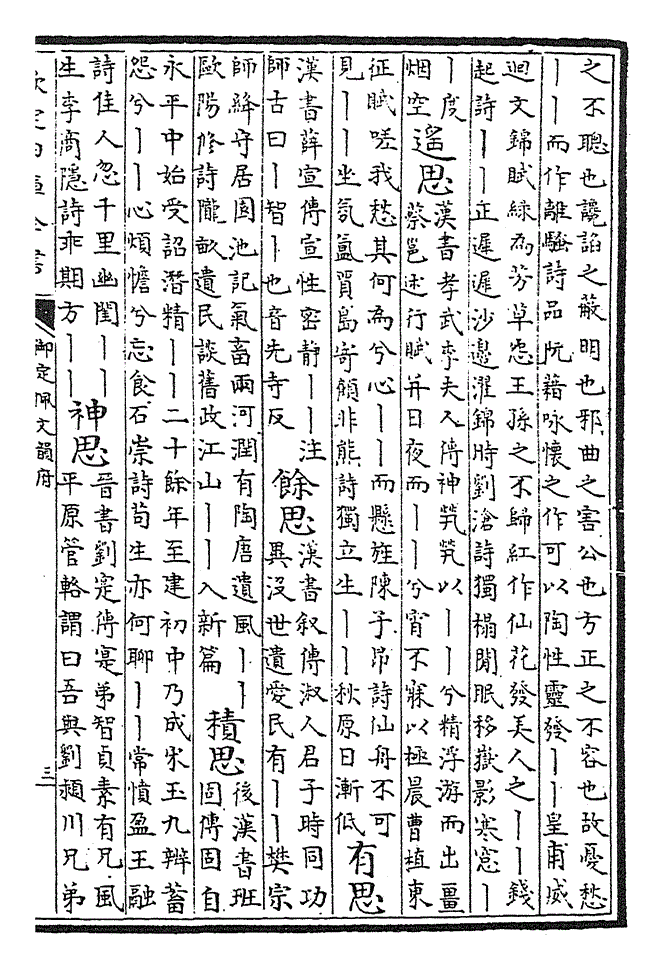 之不聰也讒諂之蔽明也邪曲之害公也方正之不容也故憂愁
｜｜而作離騷詩品阮籍咏懷之作可以陶性靈發｜｜皇甫威
迴文錦賦綠為芳草㤀王孫之不歸紅作仙花發美人之｜｜錢
起詩｜｜正遲遲沙邊濯錦時劉滄詩獨榻閒眠移嶽影寒窻｜
｜度
烟空
遙思
漢書孝武李夫人傳神煢煢以｜｜兮精浮游而出畺
蔡邕述行賦并日夜而｜｜兮宵不寐以極晨曹植東
征賦嗟我愁其何為兮心｜｜而懸旌陳子昂詩仙舟不可
見｜｜坐氛氲賈島寄顧非熊詩獨立生｜｜秋原日漸低
有思
漢書薛宣傳宣性密静｜｜注
師古曰｜智｜也音先寺反
餘思
漢書叙傳淑人君子時同功
異沒世遺愛民有｜｜樊宗
師絳守居園池記氣畜兩河潤有陶唐遺風｜｜
歐陽修詩隴畝遺民談舊政江山｜｜入新篇
積思
後漢書班
固傳固自
永平中始受詔潛精｜｜二十餘年至建初中乃成宋玉九辯蓄
怨兮｜｜心煩憺兮忘食石崇詩苟生亦何聊｜｜常憤盈王融
詩佳人忽千里幽閨｜｜
生李商隱詩乖期方｜｜
神思
晉書劉寔傳寔弟智貞素有兄風
平原管輅謂曰吾與劉潁川兄弟
欽定四庫全書
御定佩文韻府
三